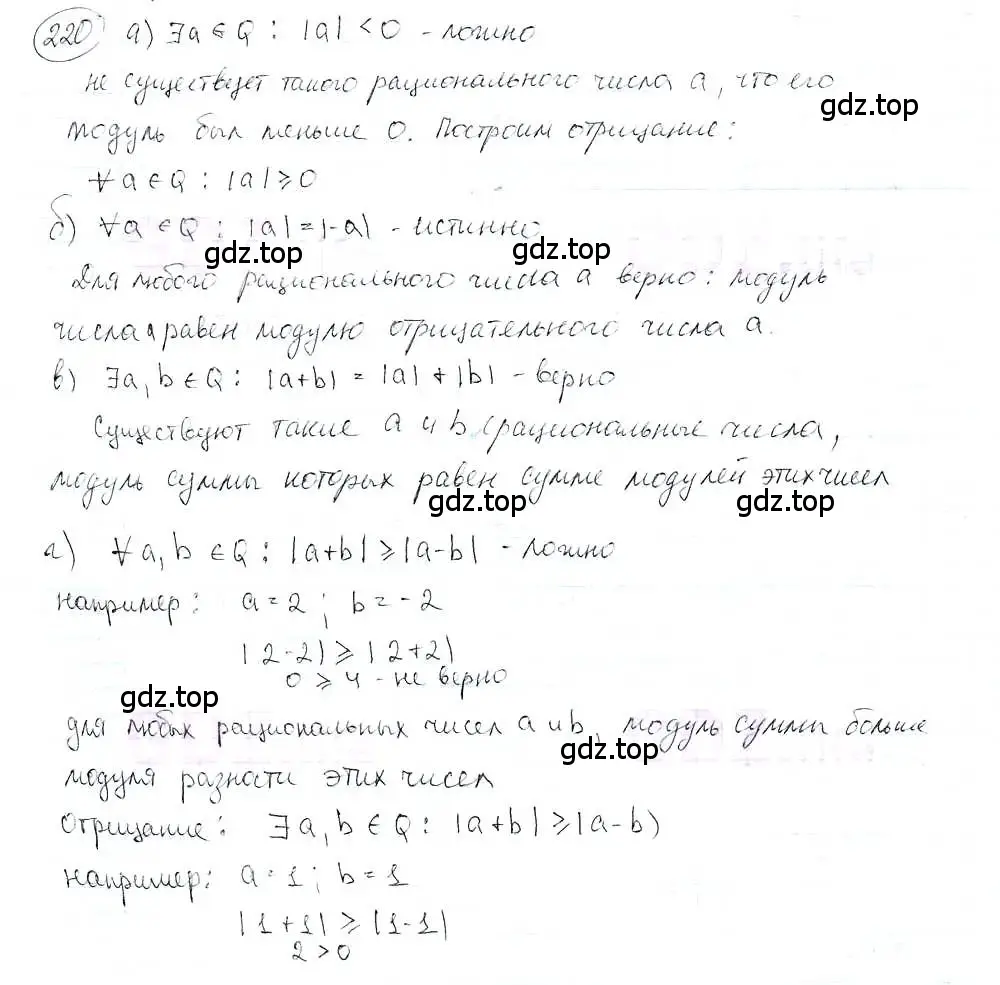 220 а) ∃a ∈ Q : |a| < 0 - ложно
не существует такого рационального числа a, что его
gdz.top
модуль был меньше 0. Построим отрицание:
∀a∈Q : |a| ⩾ 0
б) ∀a ∈ Q : |a| = |-a| - истинно
gdz.top gdz.top
Для любого рационального числа a верно: модуль
числа a равен модулю отрицательного числа a.
в) ∃a, b ∈ Q : |a+b| = |a| + |b| - верно
gdz.top gdz.top
Существуют такие a и b рациональные числа,
модуль суммы которых равен сумме модулей этих чисел
gdz.top gdz.top
г) ∀a, b ∈ Q : |a+b| ⩾ |a-b| - ложно
например: a = 2 ; b = -2
|2-2| ⩾ |2+2|
0 ⩾ 4 - не верно
gdz.top
для любых рациональных чисел a и b, модуль суммы больше
gdz.top
модуля разности этих чисел
Отрицание: ∃a, b ∈ Q : |a+b| ⩾ |a-b|
gdz.top
например: a = 1 ; b = 1
|1+1| ⩾ |1-1|
2 > 0